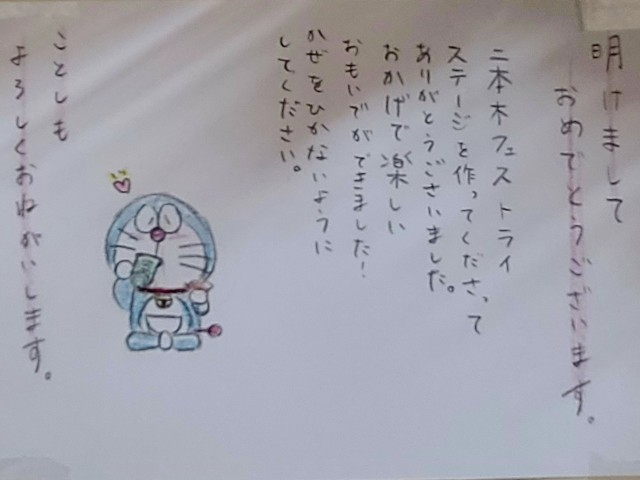 明けまして
おめでとうございます。
二本木フェス トライ
ステージを作ってくださって
ありがとうございました。
おかげで楽しい
おもいでができました!
かぜをひかないように
してください。
ことしも
よろしくおねがいします。